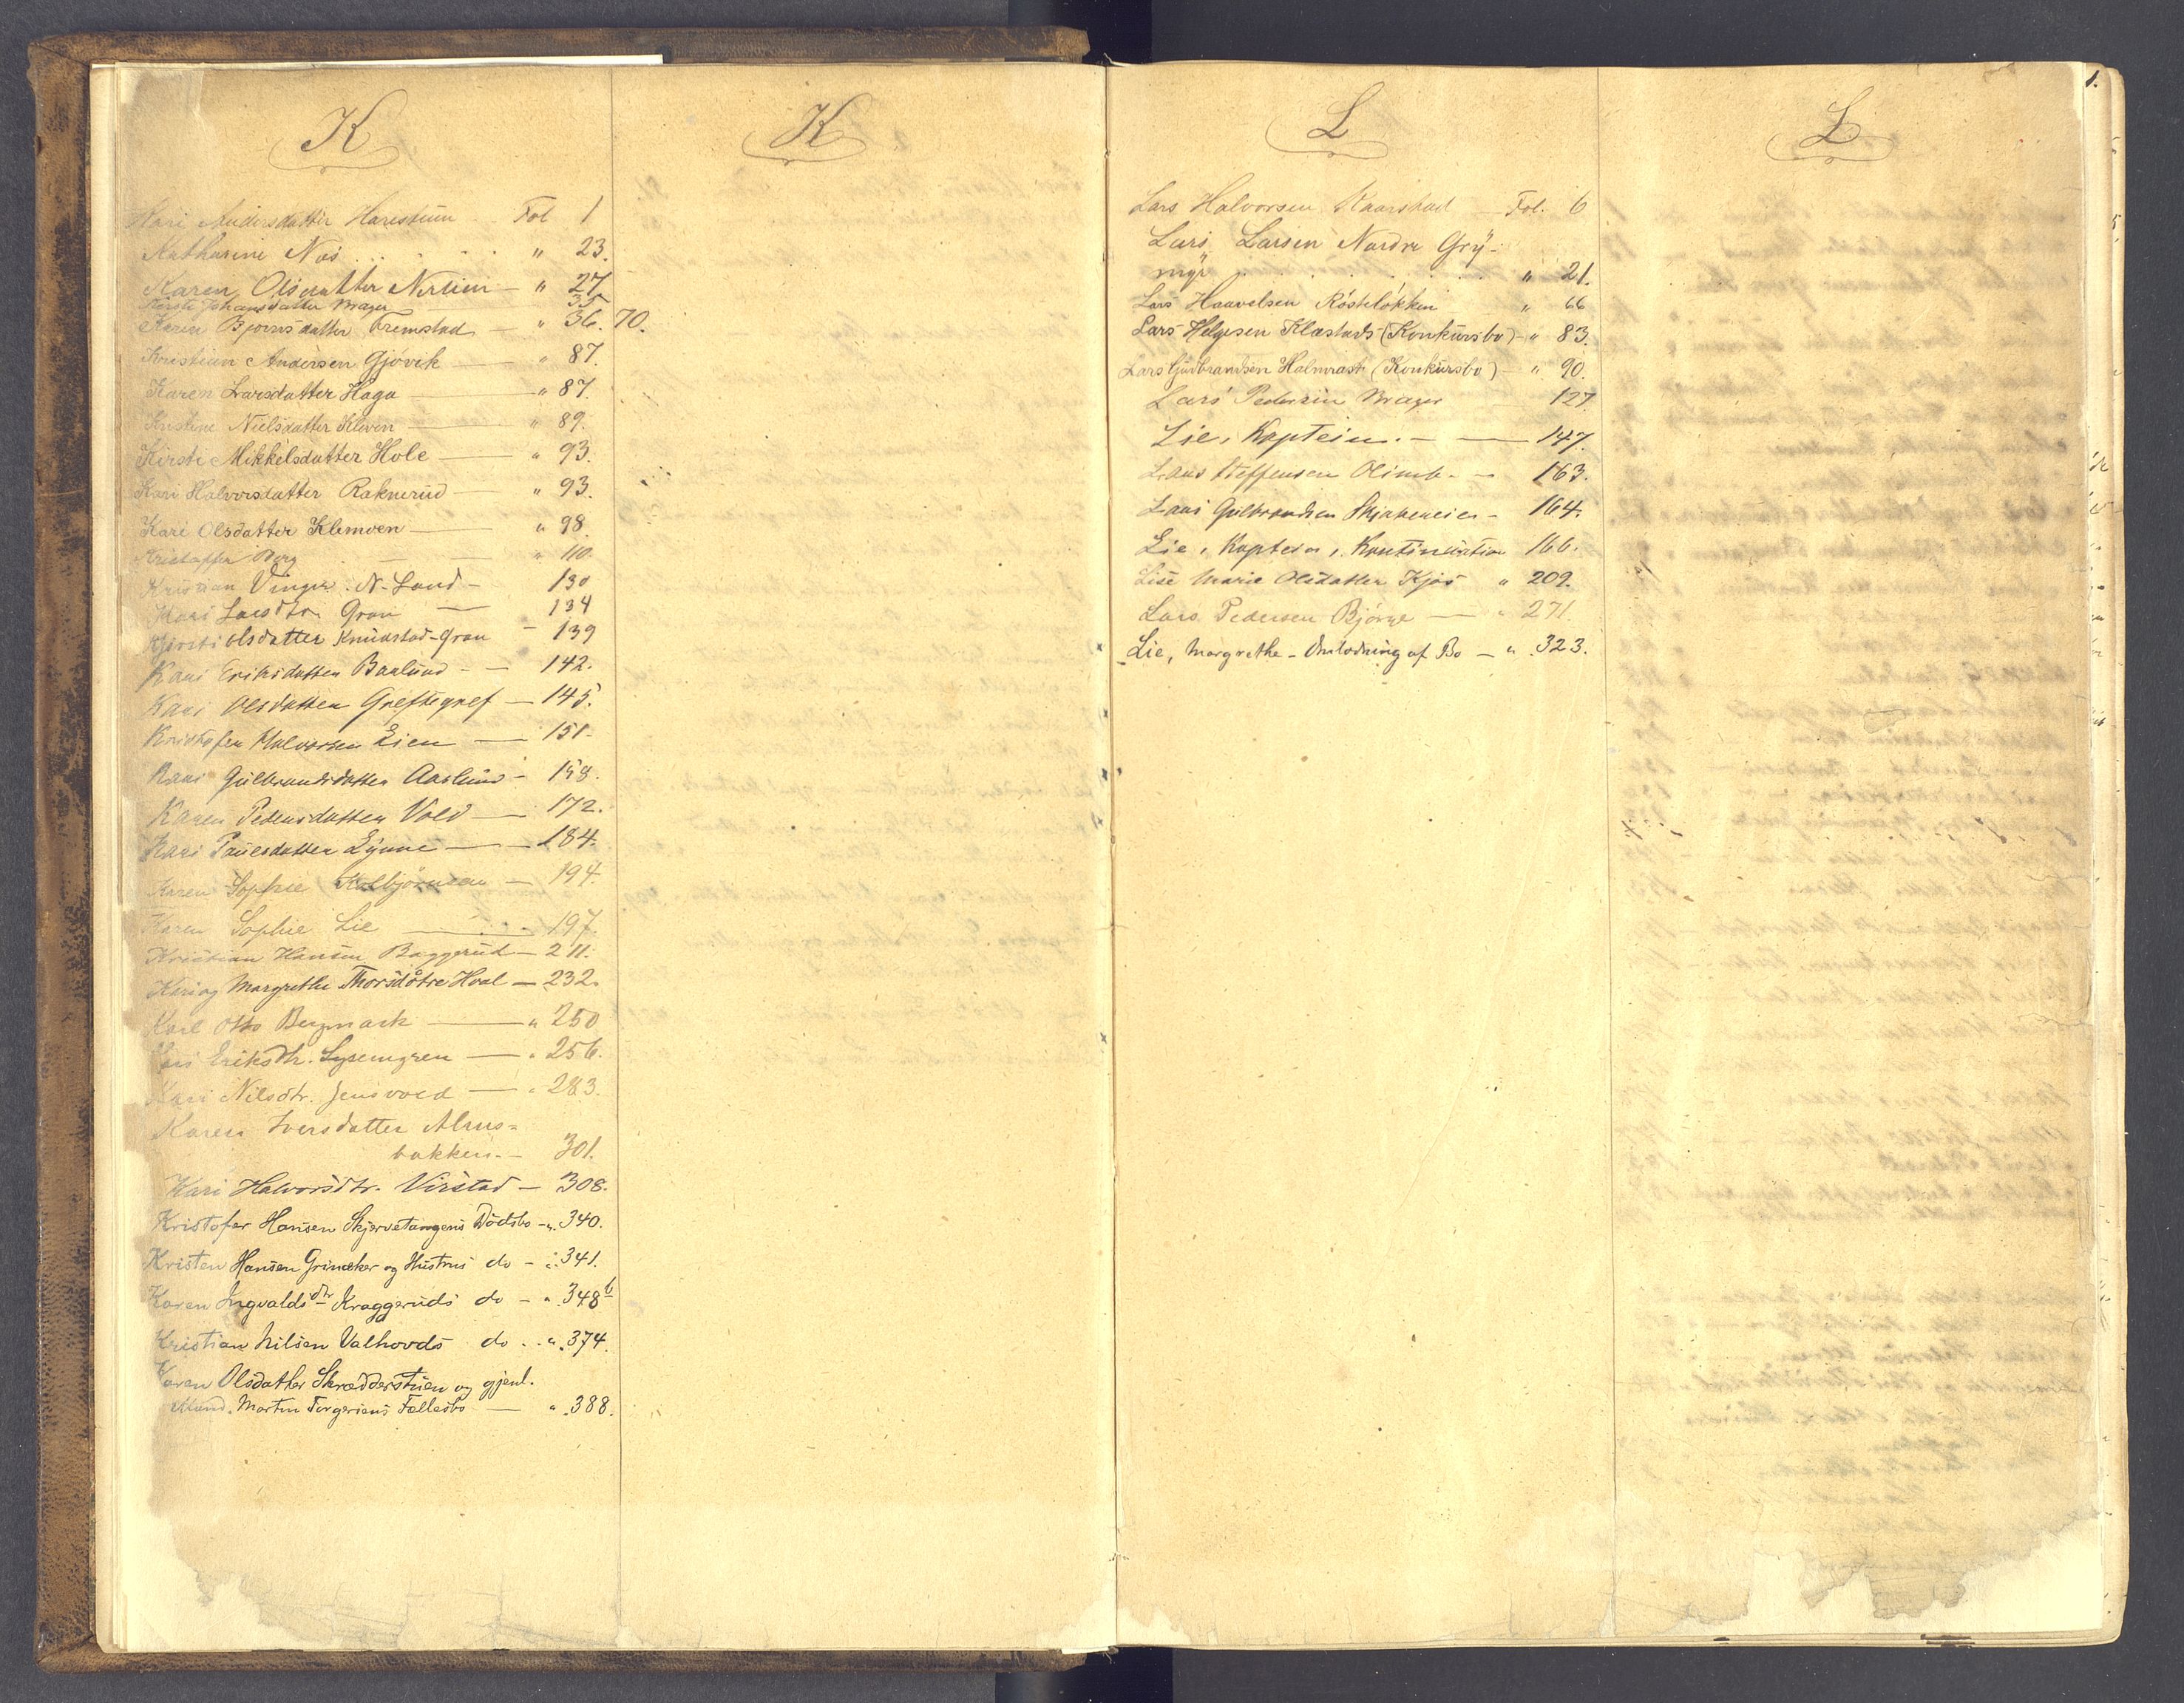 K
Kari Andersdatter Harestuen Fol 1
Katharine Næs . . . . . " 23.
Karen Olsdatter — " 27
Kirsti Johansdatter Brager 35
Karen Bjørnsdatter Fremstad — " 36. 70.
Kristian Andersen Gjøvik — " 87.
Karen Larsdatter Haga — " 87.
Kristine Nielsdatter Kleven — " 89.
Kirsti Mikkelsdatter Hole — " 93.
Kari Halvorsdatter Raknerud — " 93.
Kari Olsdatter Klemoen — " 98
Kristoffer Berg — " 110.
Kristian Vinger. N. Land — 130
Kari Larsdtr. Gran — 134
Kjersti Olsdatter Knarstad-Gran — 139
Kari Eriksdatter Baalund — 142.
Kari Olsdatter Greftegref — 145.
Kristofer Halvorsen Lien — 151.
Kari Gulbrandsdatter Aaslund — 158.
Karen Pedersdatter Vold — 172.
Kari Paulsdatter Lynne — 184.
Karen Sophie Kolbjørnsen — 194.
Karen Sophie Lie — 197.
Kristian Hansen Baggerud — 211.
Kari og Margrethe Thorsdøtre Hval — 232.
Karl Otto Bergmark — " 250
Kari Eriksdtr. Lysenengren — " 256.
Kari Nilsdtr. Jensvold — " 283.
Karen Iversdatter Almsbakken. — 301.
Kari Halvorsdtr. Virstad — 308.
Kristofer Hansen Skjervetangens Dødsbo — " 340.
Kristen Hansen Grinaker og Hustrus do — " 341.
Karen Ingvaldsdtr Kraggeruds do — " 348 b
Kristian Nilsen Valhovds do . . " 374.
Karen Olsdatter Skrædderstuen og gjenl.
Mand. Martin Torgersens Fællesbo — " 388.
K
L
Lars Halvorsen Kaarstad — Fol. 6
Lars Larsen Nordre Grymyr . . . . " 21.
Lars Haavelsen Røsteløkken " 66
Lars Helgesen Klæstads (Konkursbo) — " 83.
Lars Gudbrandsen Halmrast (Konkursbo) — " 90.
Lars Pedersen Brager 127.
Lie, Kaptein. — — 147.
Lars Steffensen Olimb. — 163.
Lars Gulbrandsen Skjakeneien — 164.
Lie, Kaptein, Kontinuation 166.
Lise Marie Olsdatter Kjøs " 209.
Lars Pedersen Bjørge — " 271.
Lie, Margrethe — Omlodning af Bo — " 323.
L
1.